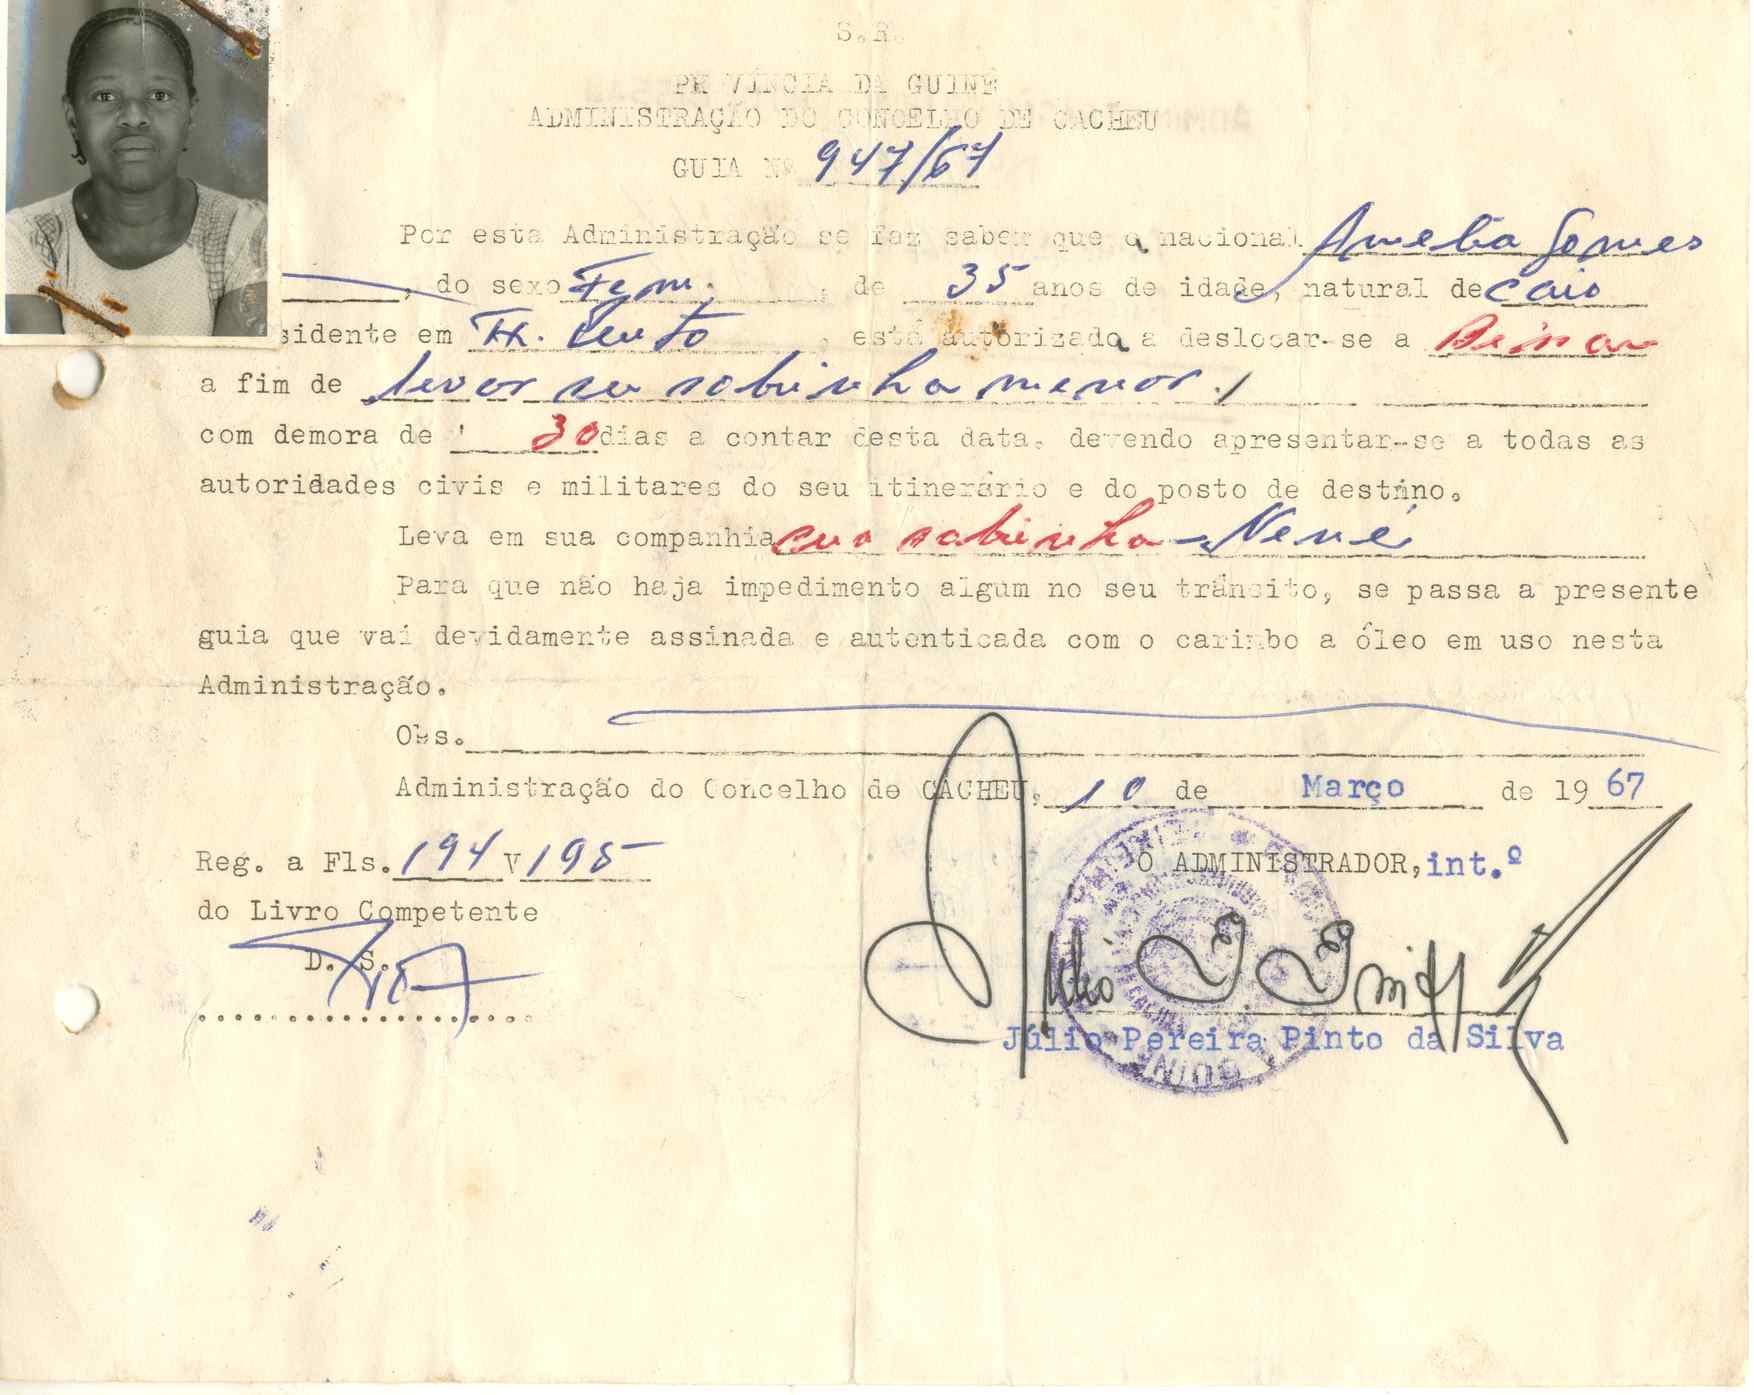 S.R.
PROVÍNCIA DA GUINÉ
ADMINISTRAÇÃO DO CONCELHO DE CACHEU
GUIA Nº 947/67
Por esta Administração se faz saber que a nacional Amelia Gomes
, do sexo Fem. , de 35 anos de idade, natural de Caio
sidente em , está autorizada a deslocar-se a Bissau
a fim de levar su sobrinha menor./
com demora de 30 dias a contar desta data, devendo apresentar-se a todas as
autoridades civis e militares do seu itinerário e do posto de destino.
Leva em sua companhia sua sobrinha - Nené
Para que não haja impedimento algum no seu trânsito, se passa a presente
guia que vai devidamente assinada e autenticada com o carimbo a óleo em uso nesta
Administração.
Obs.
Administração do Concelho de CACHEU, 10 de Março de 1967
Reg. a Fls. 194 V 195
O ADMINISTRADOR, int.º
do Livro Competente
D. S.
Júlio Pereira Pinto da Silva